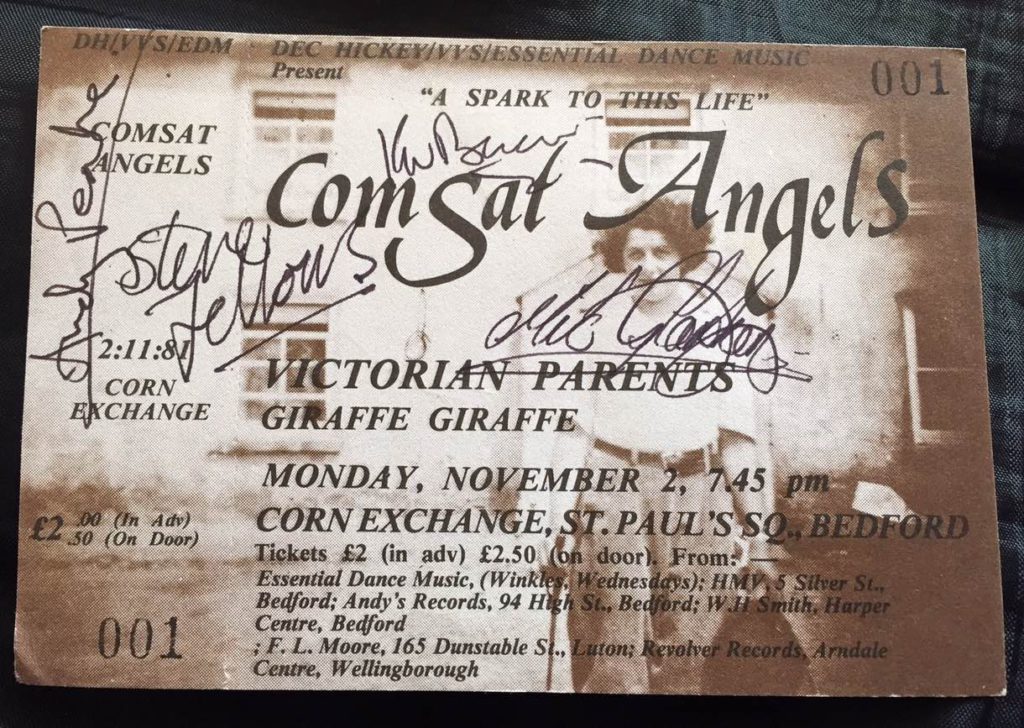 DH/VVS/EDM
DEC HICKEY/VVS/ESSENTIAL DANCE MUSIC
Present
001
"A SPARK TO THIS LIFE"
COMSAT
ANGELS
ComSat Angels
Andy Peake
Steve
Fellows
Kev Bacon
Mik Glaisher
2:11:81
CORN
EXCHANGE
VICTORIAN PARENTS
GIRAFFE GIRAFFE
MONDAY, NOVEMBER 2, 7.45 pm
£2 .00 (In Adv)
.50 (On Door)
CORN EXCHANGE, ST. PAUL'S SQ., BEDFORD
Tickets £2 (in adv) £2.50 (on door). From:-
Essential Dance Music, (Winkles, Wednesdays); HMV, 5 Silver St.,
Bedford; Andy's Records, 94 High St., Bedford; W.H Smith, Harper
Centre, Bedford
; F. L. Moore, 165 Dunstable St., Luton; Revolver Records, Arndale
Centre, Wellingborough
001